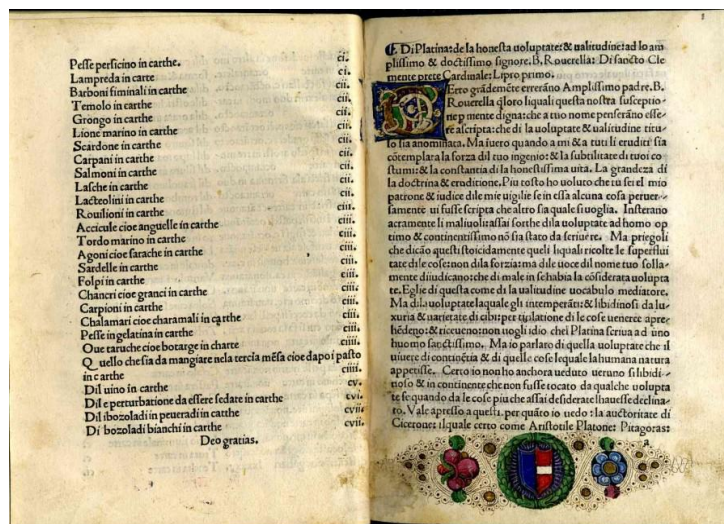 Pesse persicino in carthe. ci.
Lampreda in carte ci.
Barboni fiminali in carthe cii.
Temolo in carthe cii.
Grongo in carthe cii.
Lione marino in carthe cii.
Scardone in carthe cii.
Carpani in carthe cii.
Salmoni in carthe cii.
Lasche in carthe cii.
Lacteolini in carthe cii.
Rouilioni in carthe ciii.
Accicule cioe anguelle in carthe ciii.
Tordo marino in carthe ciii.
Agoni cioe sarache in carthe ciii.
Sardelle in carthe ciii.
Folpi in carthe ciii.
Chancri cioe granci in carthe ciii.
Carpioni in carthe ciii.
Chalamari cioe charamali in carthe ciiii.
Pesse in gelatina in carthe ciiii.
Oue taruche cioe botarge in charte ciiii.
Quello che sia da mangiare nela tercia mēsa cioe dapoi pasto
in carthe ciiii.
Dil uino in carthe cv.
Dil e perturbatione da essere sedate in carthe cvi.
Dil ibozoladi in peueradi in carthe cvii.
Di bozoladi bianchi in carthe cvii.
Deo gratias.
DI Platina: de la honesta uoluptate: & ualitudine: ad lo am
plissimo & doctissimo signore. B. Rouerella: Di sancto Cle
mente prete Cardinale: Lipro primo.
Erto grādemēte errerāno Amplissimo padre. B.
Rouerella q̄loro liquali questa nostra susceptio-
ne p mente digna: che a tuo nome penserāno esse-
re ascripta: che di la uoluptate & ualitudine titu-
lo sia anominata. Ma iuero quando a mi & a tuti li eruditi sia
cōtemplata la forza dil tuo ingenio: & la subtilitate di tuoi co
stumi: & la constantia di la honestissima uita. La grandeza di
la doctrina & eruditione. Piu tosto ho uoluto che tu sei el mio
patrone & iudice dile mie uigilie se in essa alcuna cosa peruer-
samente ui fusse scripta che altro sia quale si uoglia. Insterano
acramente li maliuoli: assai forthe dila uoluptate ad homo op
timo & continentissimo nō sia stato da scriuere. Ma priegoli
che dicāo questi stoicidamente queli liquali ricolte le superflui
tate dile cose: non dila forzia: ma dile uoce dil nome tuo solla-
mente diiudicano: che di male in se habia la cōsiderata uolupta
te. Egli e di questa come di la ualitudine uocabulo mediatore.
Ma di la uoluptate laquale gli intemperāti: & libidinosi da lu-
xuria & uarietate di cibi: per titilatione di le cose ueneree apre-
hēdeno: & riceueno: non uogli idio chel Platina scriua ad uno
huomo sanctissimo. Ma io parlaro di quella uoluptate che il
uiuere di continētia & di quelle cose lequale la humana natura
appetisse. Certo io non ho anchora ueduto ueruno si libidi-
noso & in continente che non fusse tocato da qualche uolupta
te se quando da le cose piu che assai desiderate lhauesse declina-
to. Vale apresso a questi. per quāto io uedo: la auctoritate di
Cicerone: il quale certo come Aristotile Platone: Pitagoras:
a.